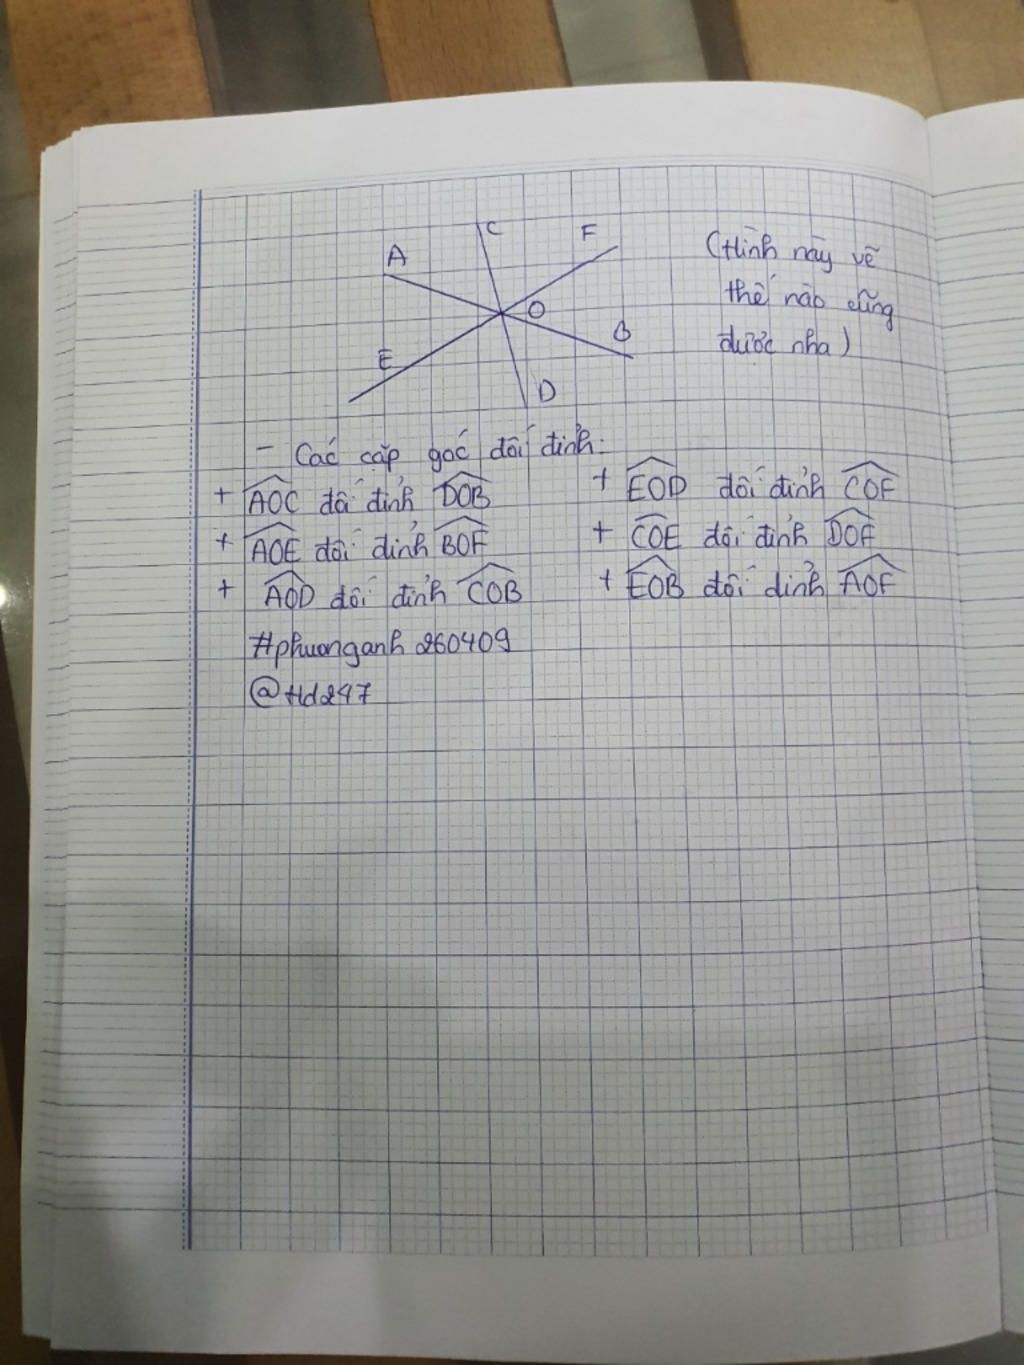 C
F
A
(Hình này vẽ
thế nào cũng
được nha)
O
B
E
D
- Các cặp góc đối đỉnh:
+ AOC đối đỉnh DOB
+ EOD đối đỉnh COF
+ AOE đối đỉnh BOF
+ COE đối đỉnh DOF
+ AOD đối đỉnh COB
+ EOB đối đỉnh AOF
#phuonganh260409
@Hd247